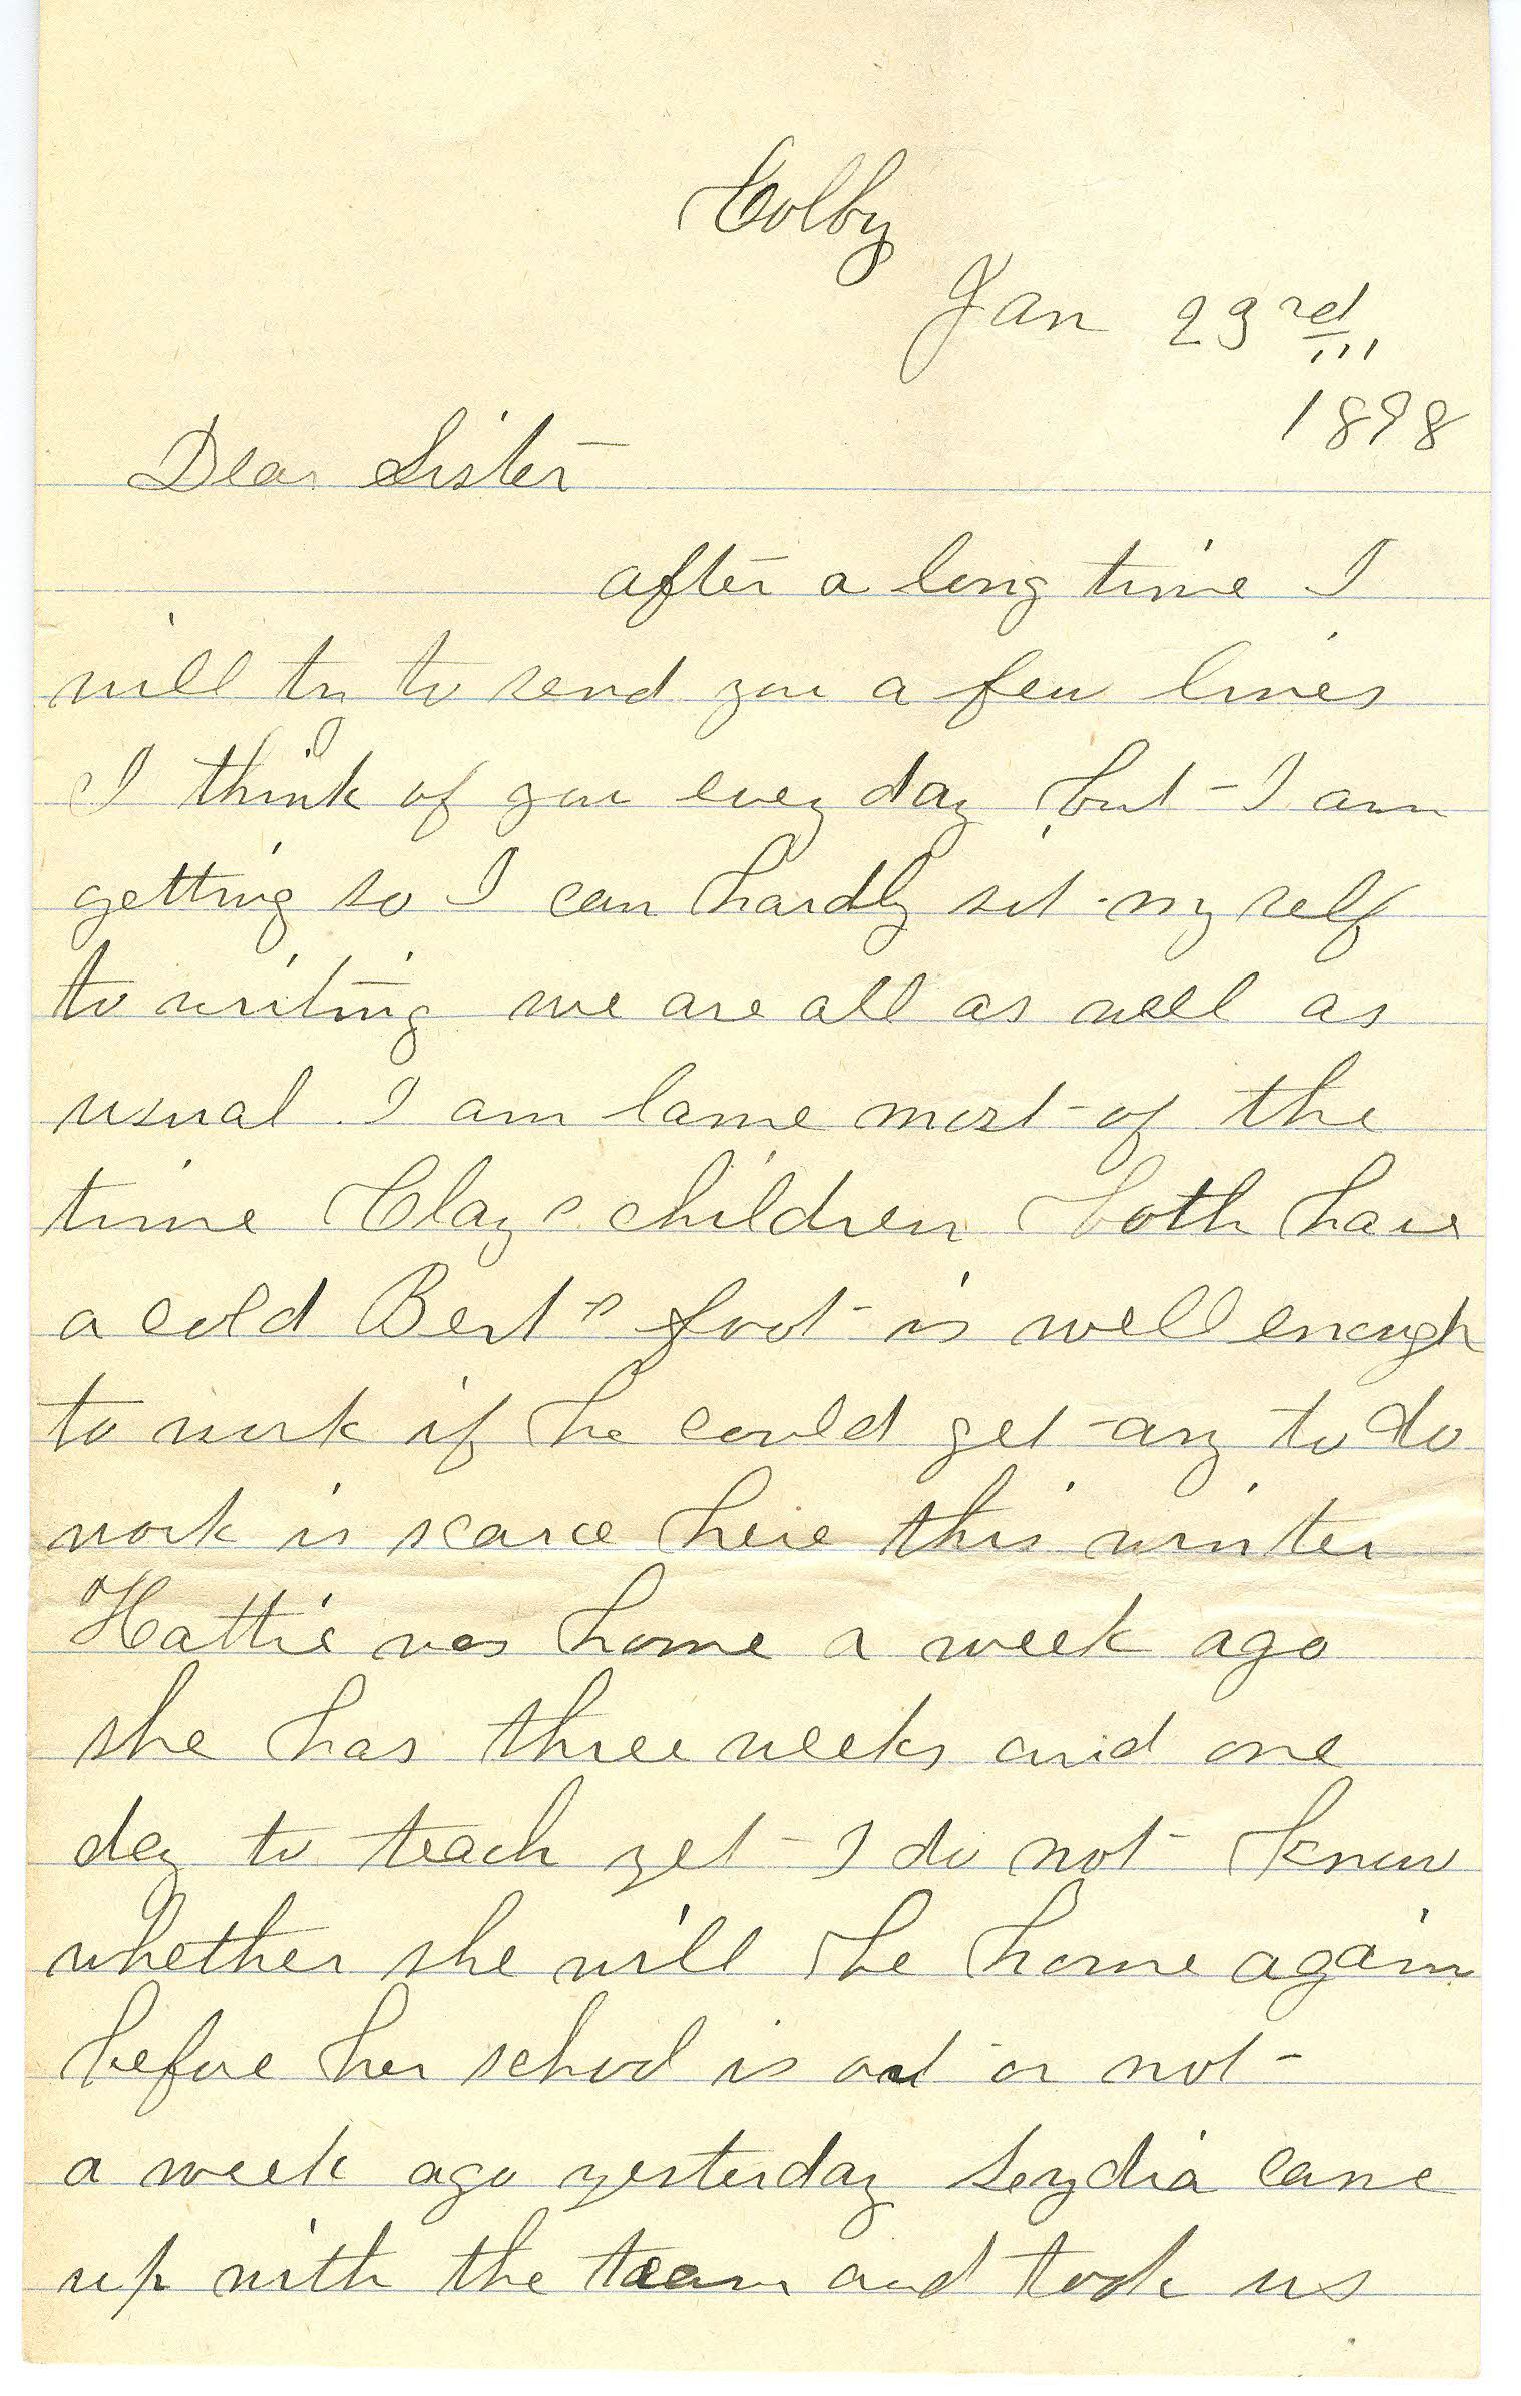 Colby
Jan 23rd
1898
Dear Sister
after a long time I
will try to send you a few lines
I think of you every day but I am
getting so I can hardly set my self
to writing we are all as well as
usual. I am lame most of the
time Clays children both have
a cold Bert's foot is well enough
to work if he could get any to do
work is scarce here this winter
Hattie was home a week ago
she has three weeks and one
day to teach yet I do not know
whether she will be home again
before her school is out or not
a week ago yesterday Leydia came
up with the team and took us